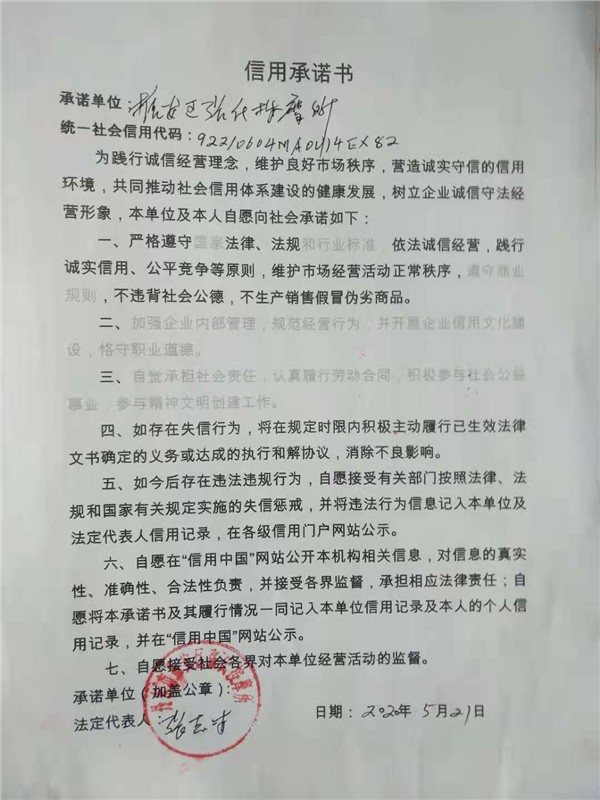 信用承诺书
承诺单位:
统一社会信用代码:92210604MA0U14EX82
为践行诚信经营理念，维护良好市场秩序，营造诚实守信的信用
环境，共同推动社会信用体系建设的健康发展，树立企业诚信守法经
营形象，本单位及本人自愿向社会承诺如下：
一、严格遵守国家法律、法规和行业标准，依法诚信经营，践行
诚实信用、公平竞争等原则，维护市场经营活动正常秩序，遵守商业
规则，不违背社会公德，不生产销售假冒伪劣商品。
二、加强企业内部管理，规范经营行为，并开展企业信用文化建
设，恪守职业道德。
三、自觉承担社会责任，认真履行劳动合同，积极参与社会公益
事业，参与精神文明创建工作。
四、如存在失信行为，将在规定时限内积极主动履行已生效法律
文书确定的义务或达成的执行和解协议，消除不良影响。
五、如今后存在违法违规行为，自愿接受有关部门按照法律、法
规和国家有关规定实施的失信惩戒，并将违法行为信息记入本单位及
法定代表人信用记录，在各级信用门户网站公示。
六、自愿在“信用中国”网站公开本机构相关信息，对信息的真实
性、准确性、合法性负责，并接受各界监督，承担相应法律责任；自
愿将本承诺书及其履行情况一同记入本单位信用记录及本人的个人信
用记录，并在“信用中国”网站公示。
七、自愿接受社会各界对本单位经营活动的监督。
承诺单位（加盖公章）：
法定代表人：张
日期：2020年5月21日